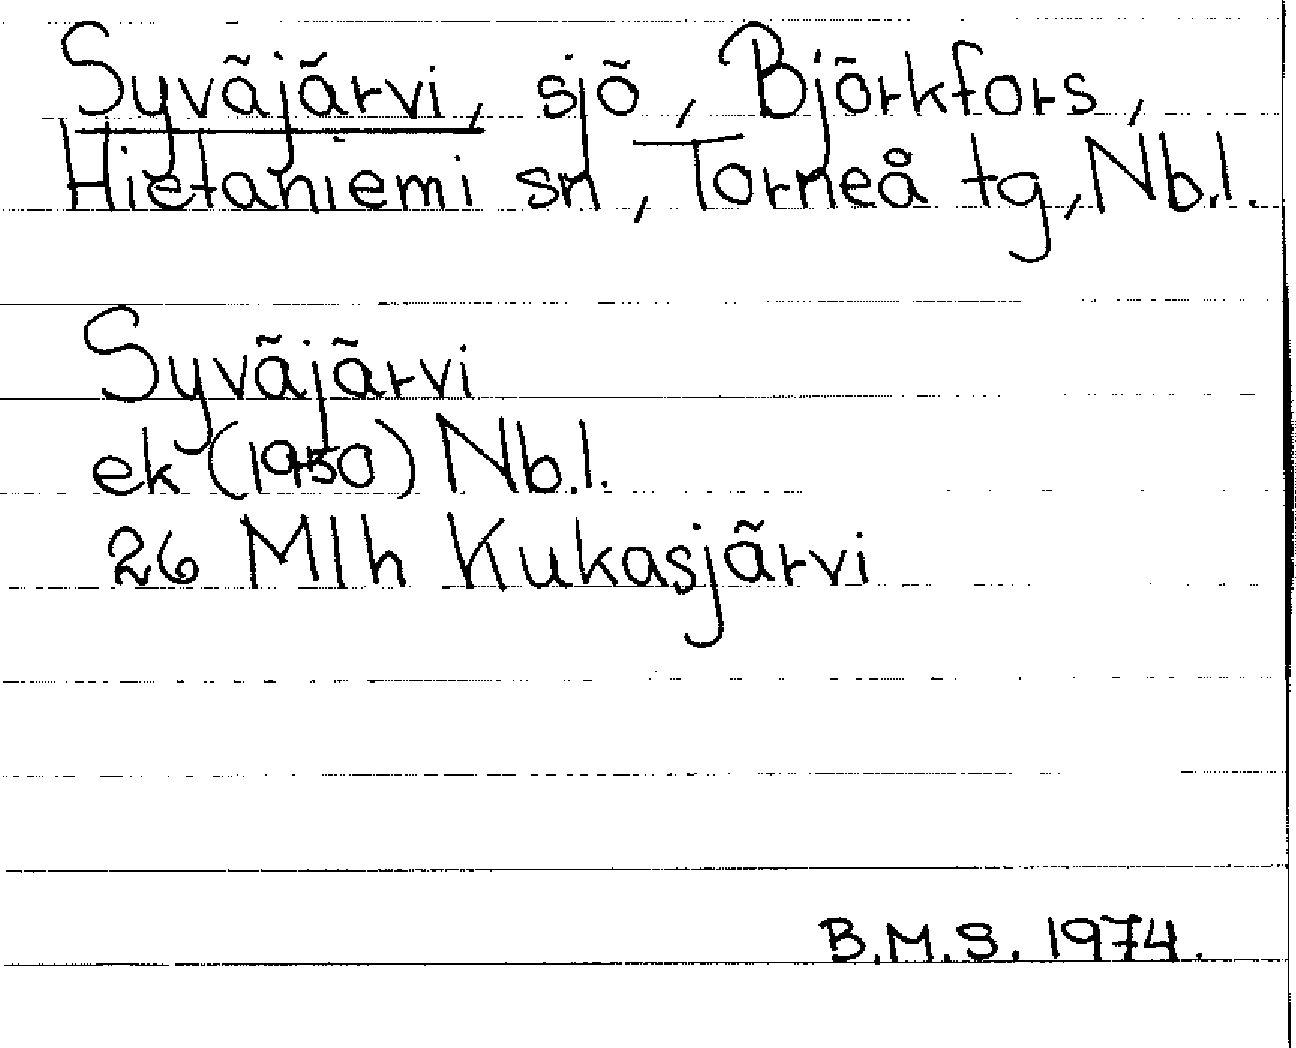 Syväjärvi, sjö, Björkfors,
Hietaniemi sn, Torneå tg, Nb.l.
Syväjärvi
ek (1950) Nb.l.
26 Mlh Kukasjärvi
B.M.S. 1974.